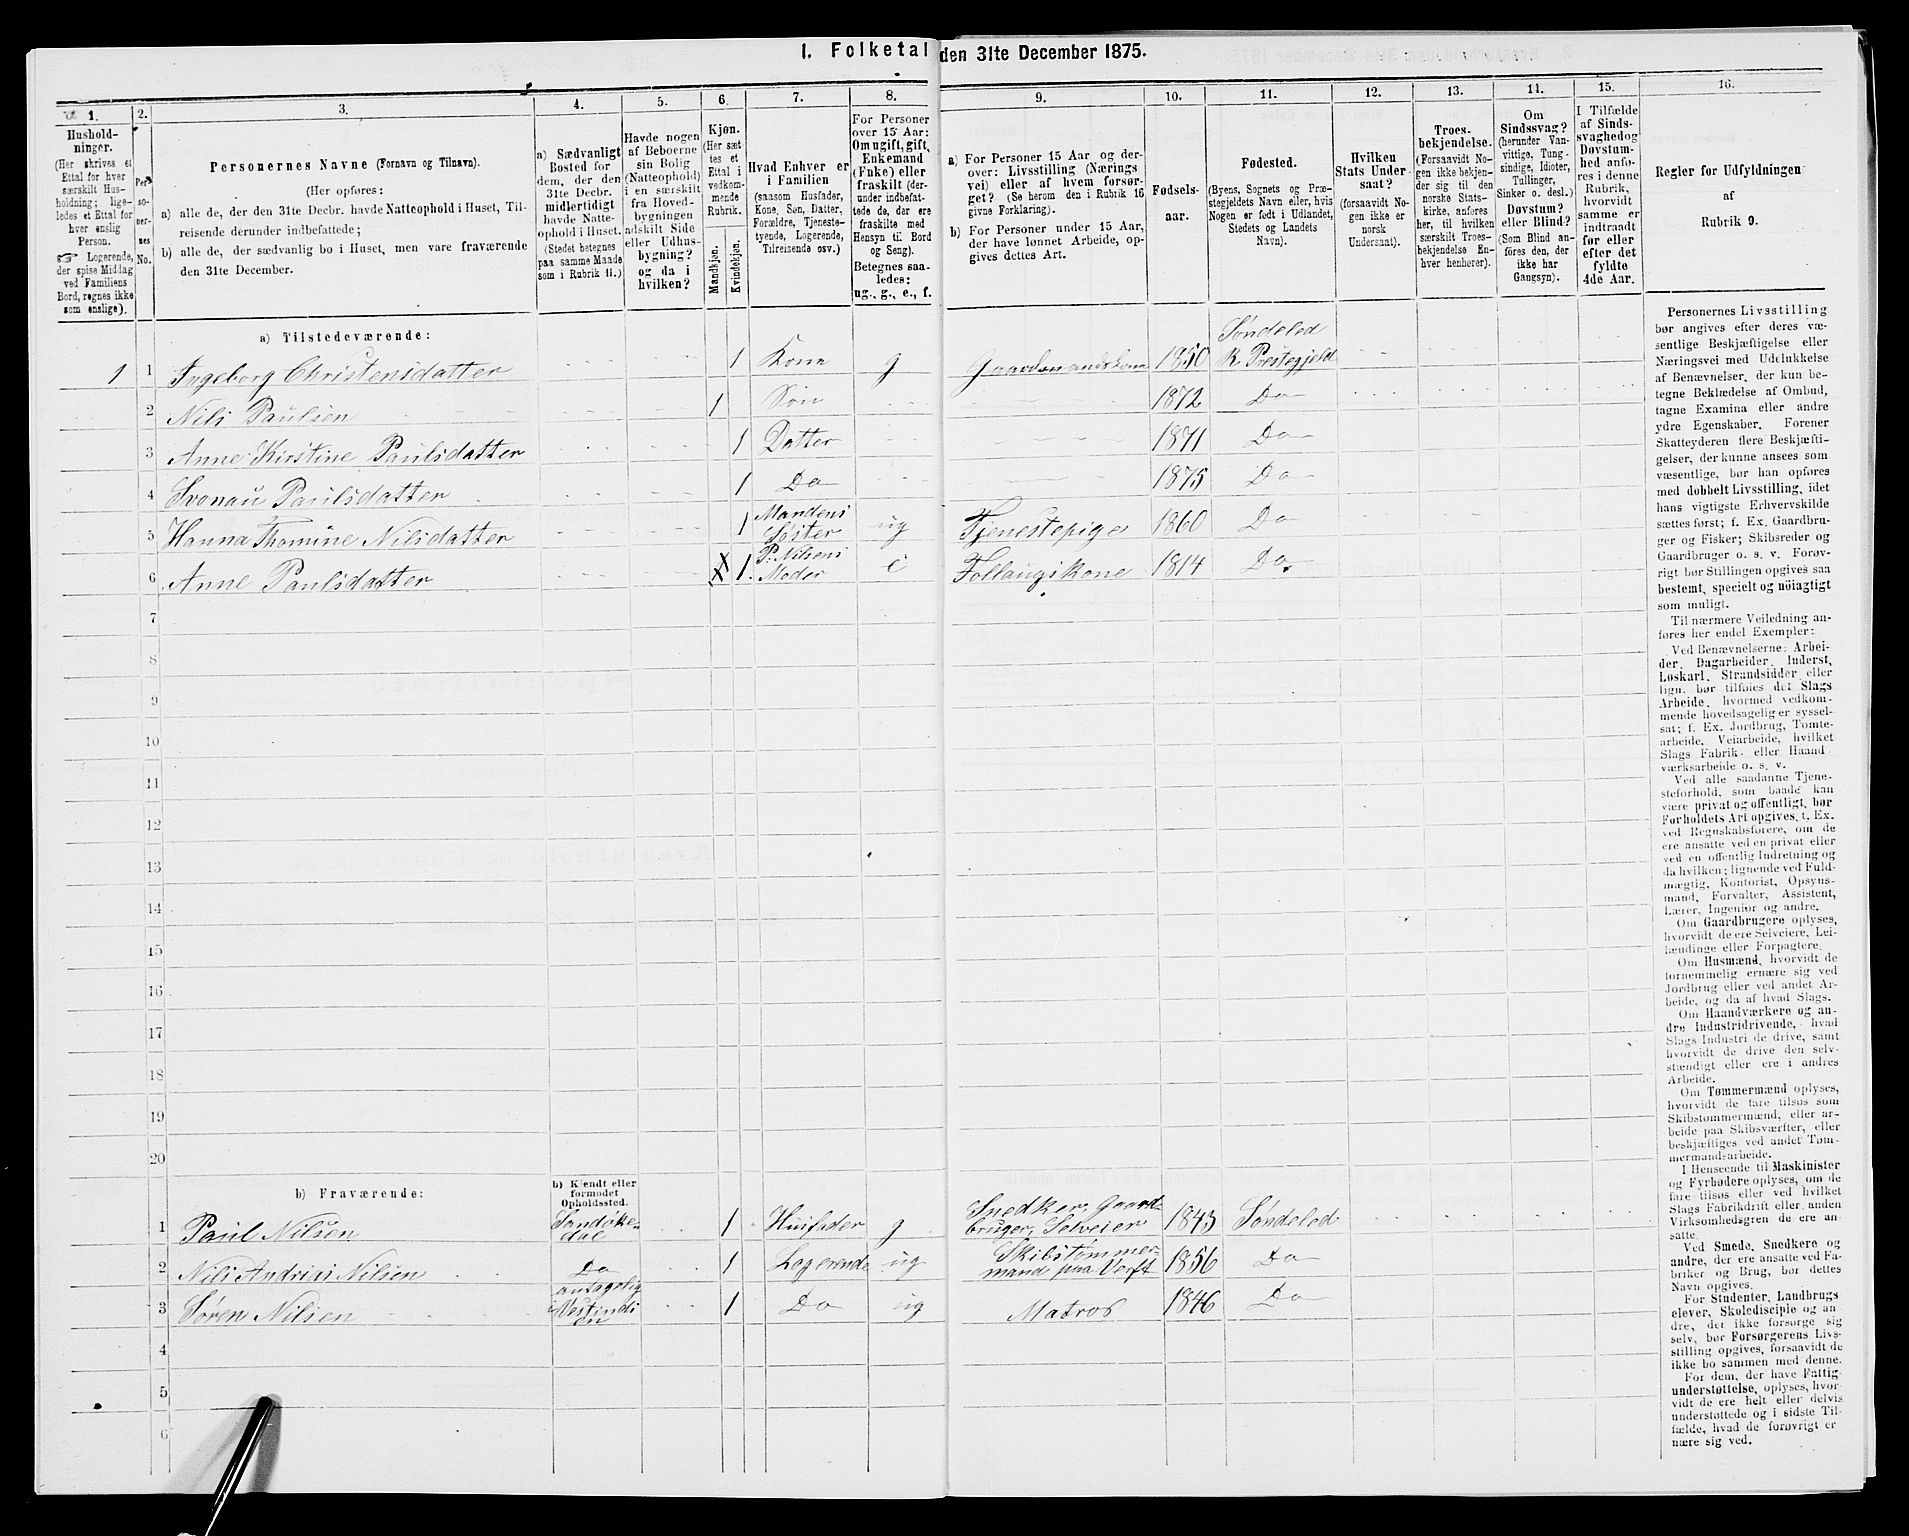 1. Folketal den 31te December 1875.
1. 2. 3. 4. 5. 6. 7. 8. 9. 10. 11. 12. 13. 14. 15. 16.
Hushold-
ninger.
(Her skrives et
Ettal for hver
særskilt Hus-
holdning; lige-
ledes et Ettal for
hver enslig
Person.
☞ Logerende,
der spise Middag
ved Familiens
Bord, regnes ikke
som enslige).
Per-
so-
ner-
nes
No.
Personernes Navne (Fornavn og Tilnavn).
(Her opføres:
a) alle de, der den 31te Decbr. havde Natteophold i Huset, Til-
reisende derunder indbefattede;
b) alle de, der sædvanlig bo i Huset, men vare fraværende
den 31te December.
a) Sædvanligt
Bosted for
dem, der den
31te Decbr.
midlertidigt
havde Natte-
ophold i Huset.
(Stedet betegnes
paa samme Maade
som i Rubrik 11.)
Havde nogen
af Beboerne
sin Bolig
(Natteophold)
i en særskilt
fra Hoved-
bygningen
adskilt Side
eller Udhus-
bygning?
og da i
hvilken?
Kjøn.
(Her sæt-
tes et
Ettal i
vedkom-
mende
Rubrik.
Mandkjøn.
Kvindekjøn.
Hvad Enhver er
i Familien
(saasom Husfader,
Kone, Søn, Datter,
Forældre, Tjeneste-
tyende, Logerende,
Tilreisende osv.)
For Personer
over 15 Aar:
Om ugift, gift,
Enkemand
(Enke) eller
fraskilt (der-
under indbefat-
tede de, der ere
fraskilte med
Hensyn til Bord
og Seng).
Betegnes saa-
ledes:
ug., g., e., f.
a) For Personer 15 Aar og der-
over: Livsstilling (Nærings-
vei) eller af hvem forsør-
get? (Se herom den i Rubrik 16
givne Forklaring).
b) For Personer under 15 Aar,
der have lønnet Arbeide, op-
gives dettes Art.
Fødsels-
aar.
Fødested.
(Byens, Sognets og Præ-
stegjeldets Navn eller, hvis
Nogen er født i Udlandet,
Stedets og Landets
Navn).
Hvilken
Stats Under-
saat?
(forsaavidt No-
gen ikke er
norsk
Undersaat).
Troes-
bekjendelse.
(Forsaavidt No-
gen ikke bekjen-
der sig til den
norske Stats-
kirke, anføres
her, til hvilken
særskilt Troes-
bekjendelse En-
hver henhører).
Om
Sindssvag?
(herunder Van-
vittige, Tung-
sindige, Idioter,
Tullinger,
Sinker o. desl.)
Døvstum?
eller Blind?
(Som Blind an-
føres den, der
ikke har
Gangsyn).
I Tilfælde
af Sinds-
svaghed og
Døvstum-
hed anfø-
res i denne
Rubrik,
hvorvidt
samme er
indtraadt
før eller
efter det
fyldte
4de Aar.
Regler for Udfyldningen
af
Rubrik 9.
a) Tilstedeværende:
1 1 Ingeborg Christensdatter 1 Kone g Gaardmandskone 1850 Søndeled R. Prestegjeld
2 Nils Paulsen 1 Søn 1872 Do
3 Anne Kirstine Paulsdatter 1 Datter 1871 Do
4 Svonau Paulsdatter 1 Do 1875 Do
5 Hanna Thomine Nilsdatter 1 Mandens Søster ug Tjenestepige 1860 Do
6 Anne Paulsdatter 1 P. Nilsens Moder e Follaugskone 1814 Do
7
8
9
10
11
12
13
14
15
16
17
18
19
20
b) Fraværende:
b) Kjendt eller
formodet
Opholdssted.
1 Paul Nilsen Sandøke-
dal 1 Husfader g Snedker, Gaard-
bruger, Selveier 1843 Søndeled
2 Nils Andrias Nilsen Do 1 Logerende ug Skibstømmer-
mand paa Verft 1856 Do
3 Søren Nilsen antagelig
Vestindi
en 1 Do ug Matros 1846 Do
4
5
6
Personernes Livsstilling
bør angives efter deres væ-
sentlige Beskjæftigelse eller
Næringsvei med Udelukkelse
af Benævnelser, der kun be-
tegne Beklædelse af Ombud,
tagne Examina eller andre
ydre Egenskaber. Forener
Skatteyderen flere Beskjæfti-
gelser, der kunne ansees som
væsentlige, bør han opføres
med dobbelt Livsstilling, idet
hans vigtigste Erhvervskilde
sættes først; f. Ex. Gaardbru-
ger og Fisker; Skibsreder og
Gaardbruger o. s. v. Forøv-
rigt bør Stillingen opgives saa
bestemt, specielt og nöiagtigt
som muligt.
Til nærmere Veiledning an-
føres her endel Exempler:
Ved Benævnelserne: Arbei-
der, Dagarbeider, Inderst,
Løskarl, Strandsidder eller
lign. bør tilføies det Slags
Arbeide, hvormed vedkom-
mende hovedsagelig er syssel-
sat; f. Ex. Jordbrug, Tomte-
arbeide, Veiarbeide, hvilket
Slags Fabrik- eller Haand-
værksarbeide o. s. v.
Ved alle saadanne Tjene-
steforhold, som baade kan
være privat og offentligt, bør
Forholdets Art opgives, t. Ex.
ved Regnskabsførere, om de
ere ansatte ved en privat eller
ved en offentlig Indretning og
da hvilken; lignende ved Fuld-
mægtig, Kontorist, Opsyns-
mand, Forvalter, Assistent,
Lærer, Ingeniør og andre.
Om Gaardbrugere oplyses,
hvorvidt de ere Selveiere, Lei-
lændinge eller Forpagtere.
Om Husmænd, hvorvidt de
fornemmelig ernære sig ved
Jordbrug eller ved andet Ar-
beide, og da af hvad Slags.
Om Haandværkere og an-
dre Industridrivende, hvad
Slags Industri de drive, samt
hvorvidt de drive den selv-
stændigt eller ere i andres
Arbeide.
Om Tømmermænd oplyses,
hvorvidt de fare tilsøs som
Skibstømmermænd, eller ar-
beide paa Skibsværfter, eller
beskjæftiges ved andet Tøm-
mermandsarbeide.
I Henseende til Maskinister
og Fyrbødere oplyses, om de
fare tilsøs eller ved hvilket
Slags Fabrikdrift eller anden
Virksomhedsgren de ere an-
satte.
Ved Smede, Snedkere og
andre, der ere ansatte ved Fa-
briker og Brug, bør dettes
Navn opgives.
For Studenter, Landbrugs-
elever, Skoledisciple og an-
dre, der ikke forsørge sig
selv, bør Forsørgerens Livs-
stilling opgives, forsaavidt de
ikke bo sammen med denne.
For dem, der have Fattig-
understøttelse, oplyses, hvor-
vidt de ere helt eller delvis
understøttede og i sidste Til-
fælde, hvad de forøvrigt er-
nære sig ved.